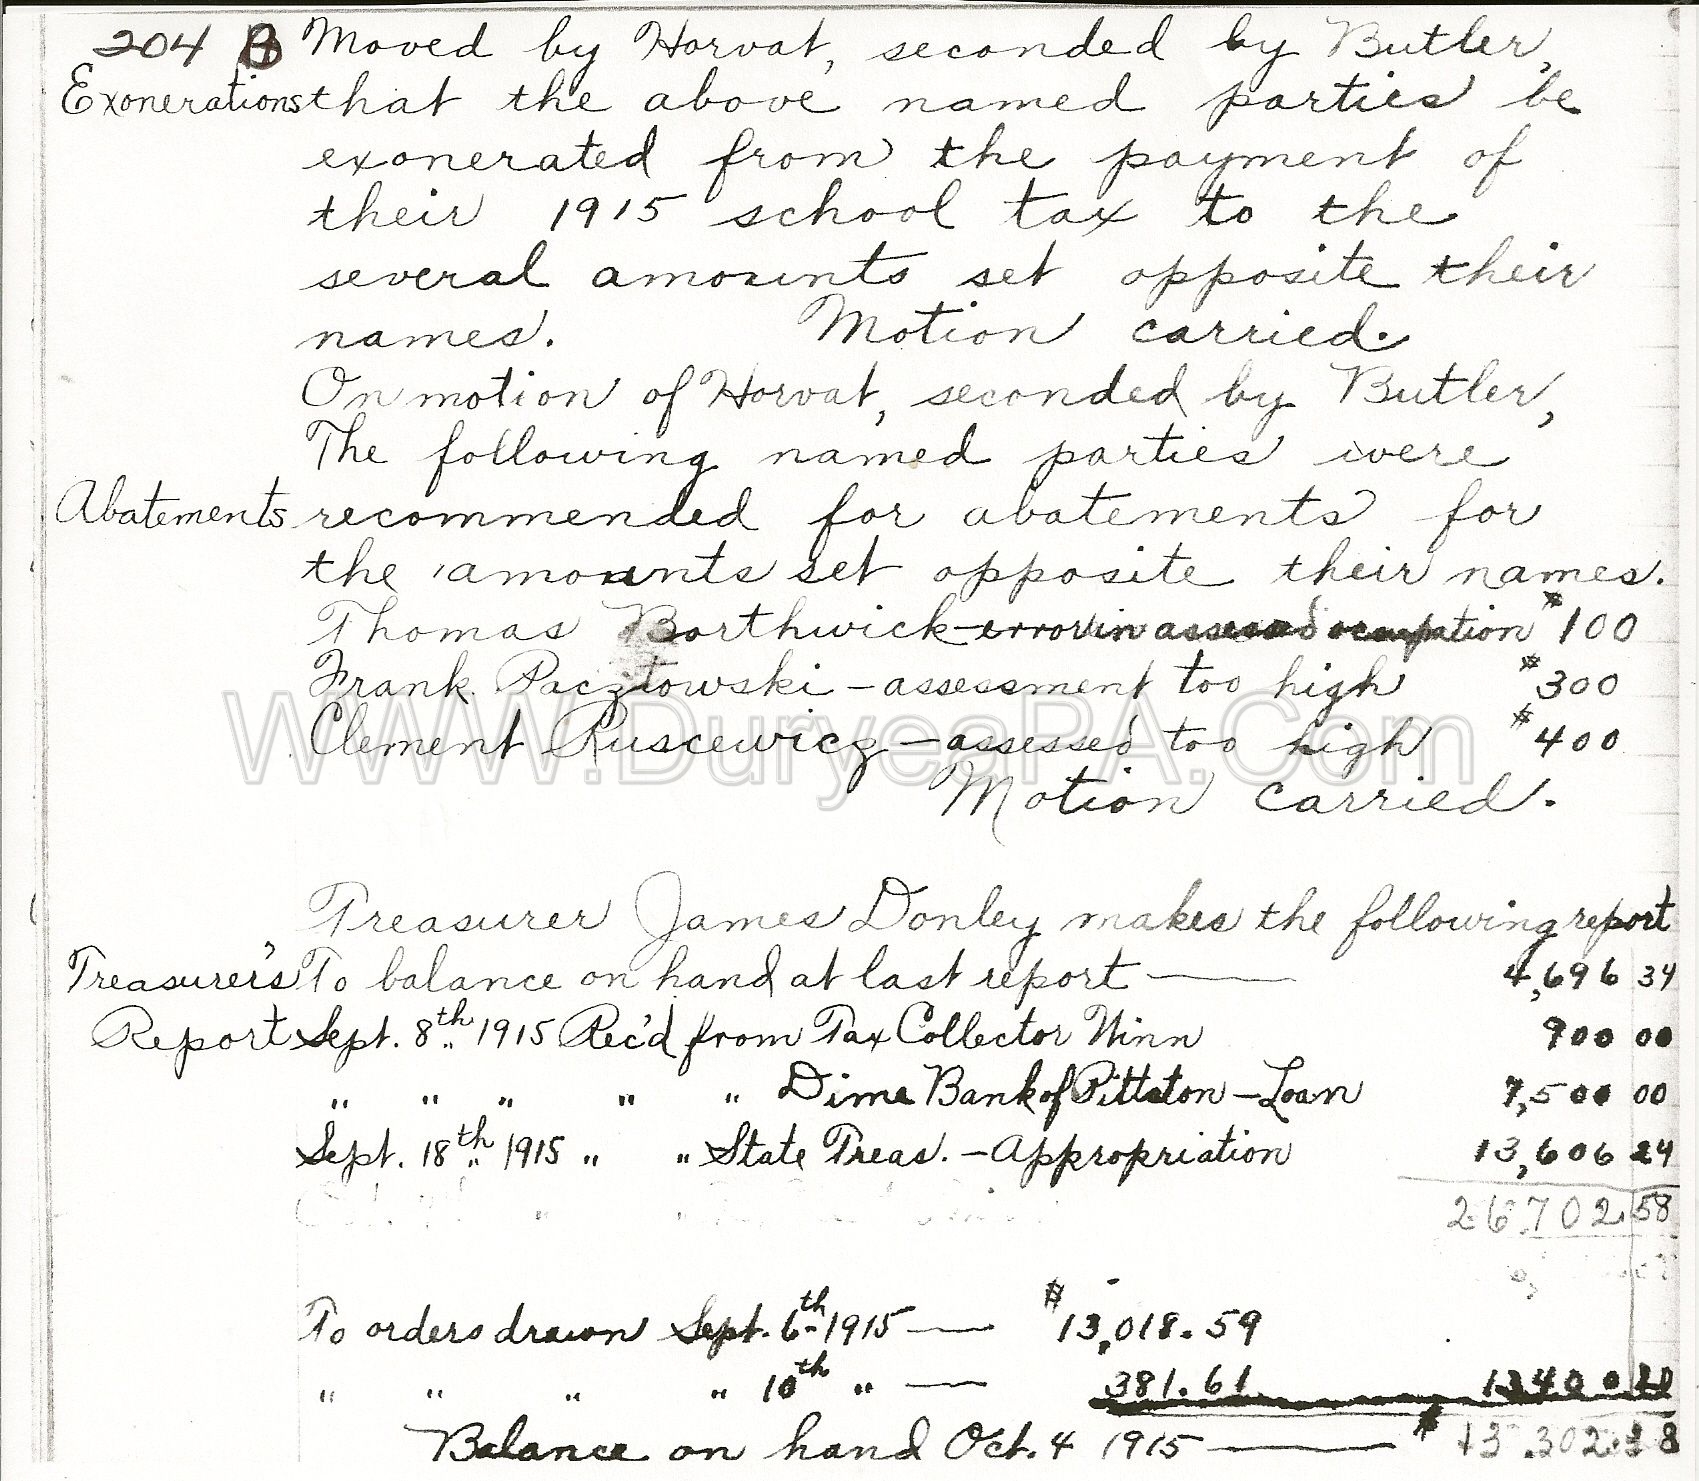 204 A Moved by Horvat, seconded by Butler,
Exonerations that the above named parties be
exonerated from the payment of
their 1915 school tax to the
several amounts set opposite their
names. Motion carried.
On motion of Horvat, seconded by Butler,
The following named parties were
Abatements recommended for abatements for
the amounts set opposite their names.
Thomas Borthwick - error in assessed occupation $100
Frank Pacztowski - assessment too high $300
Clement Ruscewicz - assessed too high $400
WWW.DuryeaPA.Com
Motion carried.
Treasurer James Donley makes the following report
Treasurer's To balance on hand at last report — 4,696 34
Report Sept. 8th 1915 Rec'd from Tax Collector Winn 900 00
" " " " " Dime Bank of Pittston - Loan 7,500 00
Sept. 18th 1915 " " State Treas. - Appropriation 13,606 24
26702.58
To orders drawn Sept. 6th 1915 — $13,018.59
" " " " 10th " — 381.61 13400 20
Balance on hand Oct. 4 1915 — $13.302.38